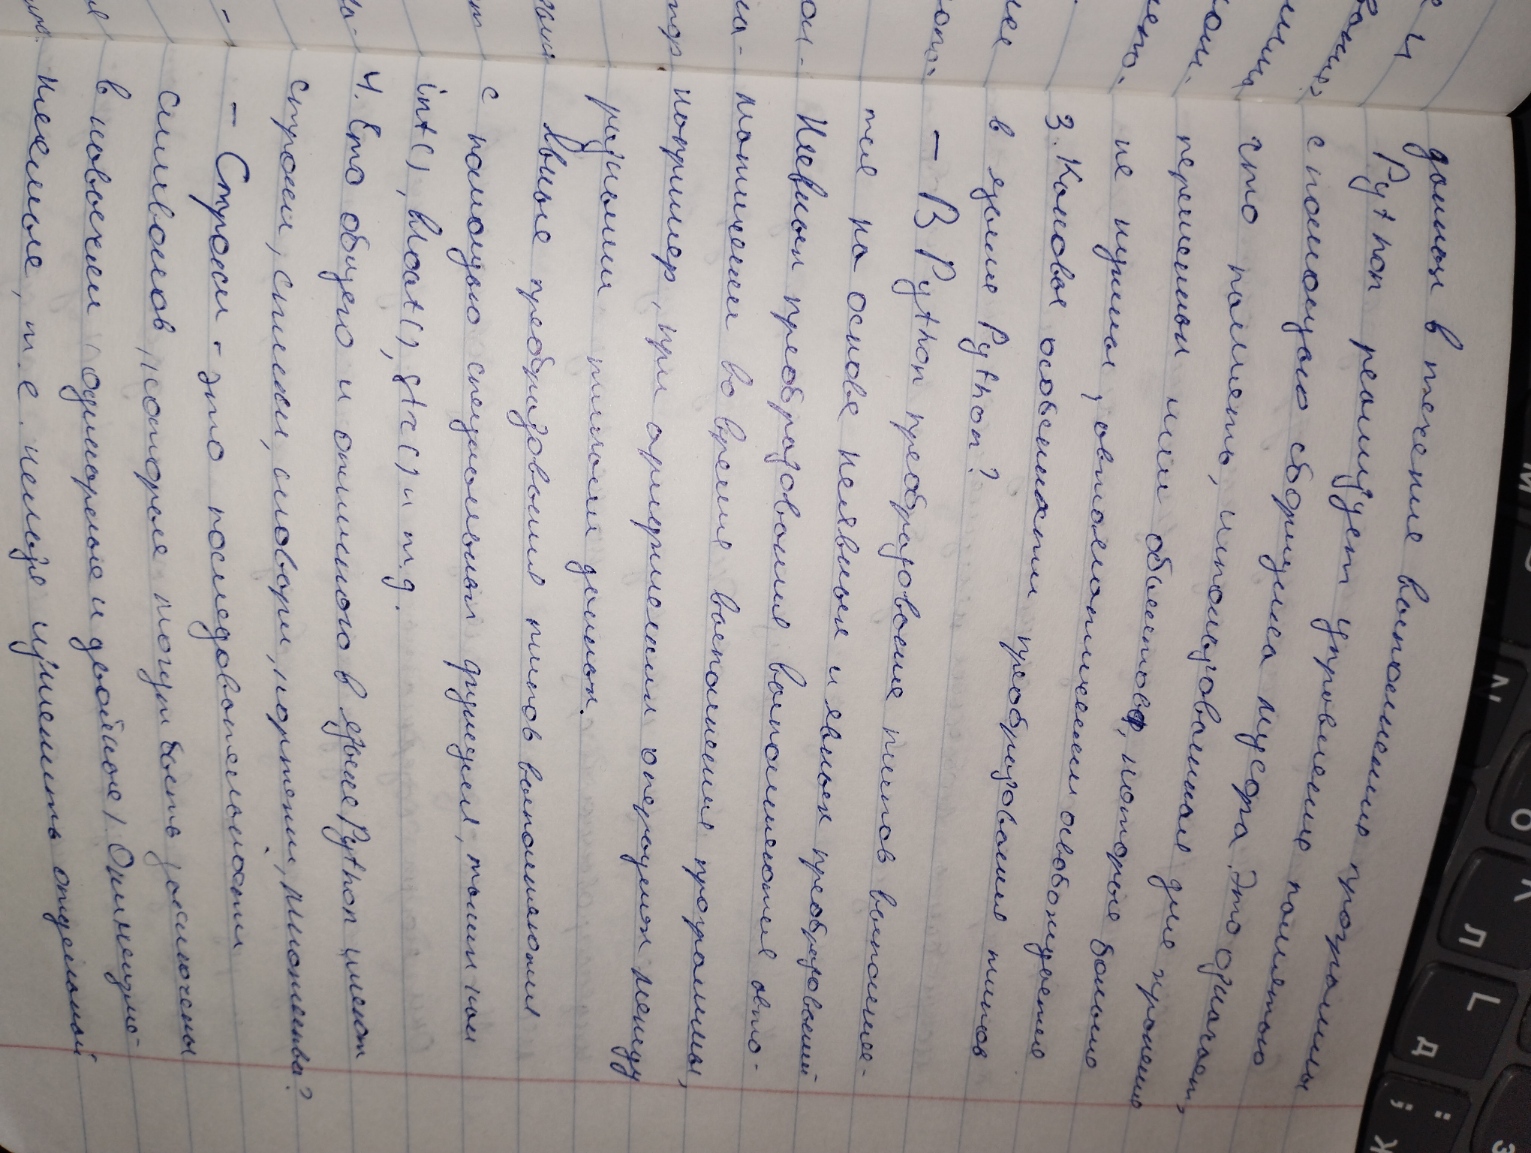 данных в течение выполнения программы
Python реализует управление памятью
с помощью сборщика мусора. Это означает,
что память, использованная для хранения
переменных или объектов, которые больше
не нужны, автоматически освобождается
3. Каковы особенности преобразования типов
в языке Python?
- В Python преобразование типов выполняе-
тся на основе неявных и явных преобразований
Неявных преобразования выполняются авто-
матически во время выполнения программы,
например, при арифмических операциях между
разными типами данных.
Явные преобразования типов выполняются
с помощью специальных функция, таких как
int(), float(), str() и т.д.
4. Что общего и отличного в языке Python имеют
строки, списки, словари, кортежи, множества?
- Строки - это последовательности
символов, которые могут быть заключены
в кавычки (одинарные и двойные) Они неизме-
няемые, т.е. нельзя изменить отдельный